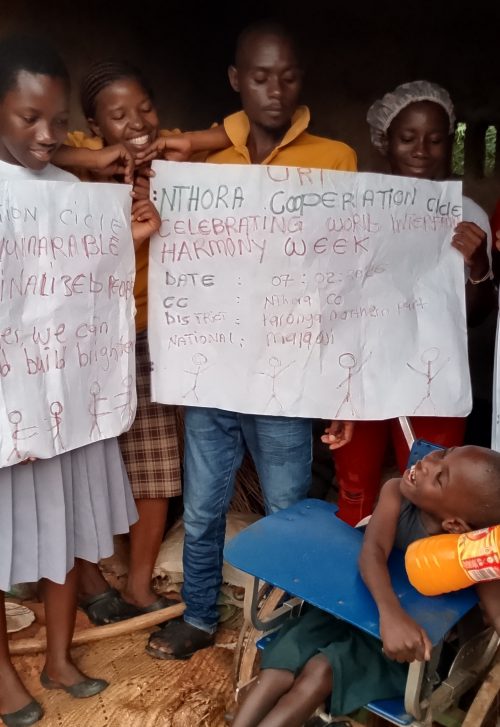 ION CICLE
VUNARABLE
INALISED PEOPL
we can
build brighter
URI
NTHORA COOPERATION CICLE
CELEBRATING WORLD INTERFAITH
HARMONY WEEK
DATE : 07:02:
CC : Nthora CC
DISTRICT : Karonga northern Part
NATIONAL : malawi